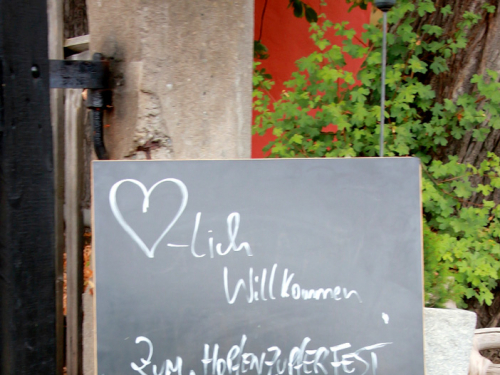 ♡-lich
Willkommen
ZUM HOPFENZUPFERFEST